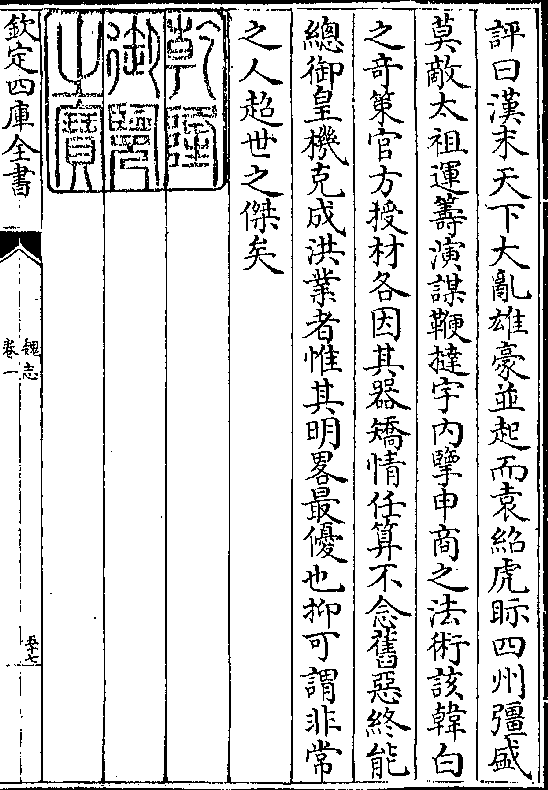 評曰漢末天下大亂雄豪並起而袁紹虎眎四州彊盛
莫敵太祖運籌演謀鞭撻宇內擥申商之法術該韓白
之奇策官方授材各因其器矯情任算不念舊惡終能
總御皇機克成洪業者惟其明畧最優也抑可謂非常
之人超世之傑矣
乾隆
御覽
之寶
欽定四庫全書
魏志
卷一
五十七